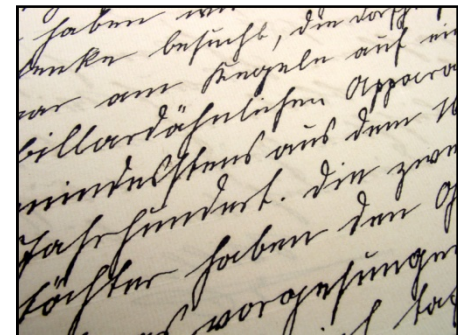 haben
besucht, die
war am Kegeln auf
billardähnlichen Appara
mindestens aus dem 16
Jahrhundert. Die zwe
töchter haben den
vorgesungen